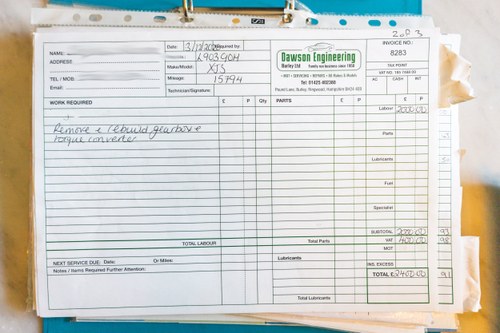 2 of 3
NAME:
ADDRESS:
TEL / MOB:
Email:
Date: 3/12/2020
Required by:
L903GOH
Make/Model: XJS
Mileage: 15794
Technician/Signature:
Dawson Engineering
Burley Ltd Family run business since 1958
• MOT • SERVICING • REPAIRS • All Makes & Models
Tel: 01425 402388
Pound Lane, Burley, Ringwood, Hampshire BH24 4EE
INVOICE NO.:
8283
TAX POINT
AC CASH INT
WORK REQUIRED £ P Qty PARTS £ P
Remove & rebuild gearbox &
torque converter
Labour 2000.00
Parts
Lubricants
Fuel
Specialist
SUBTOTAL 2000.00
VAT 400.00
MOT
INS. EXCESS
TOTAL £ 2400.00
TOTAL LABOUR Total Parts
NEXT SERVICE DUE: Date: Or Miles: Lubricants
Notes / Items Required Further Attention:
Total Lubricants